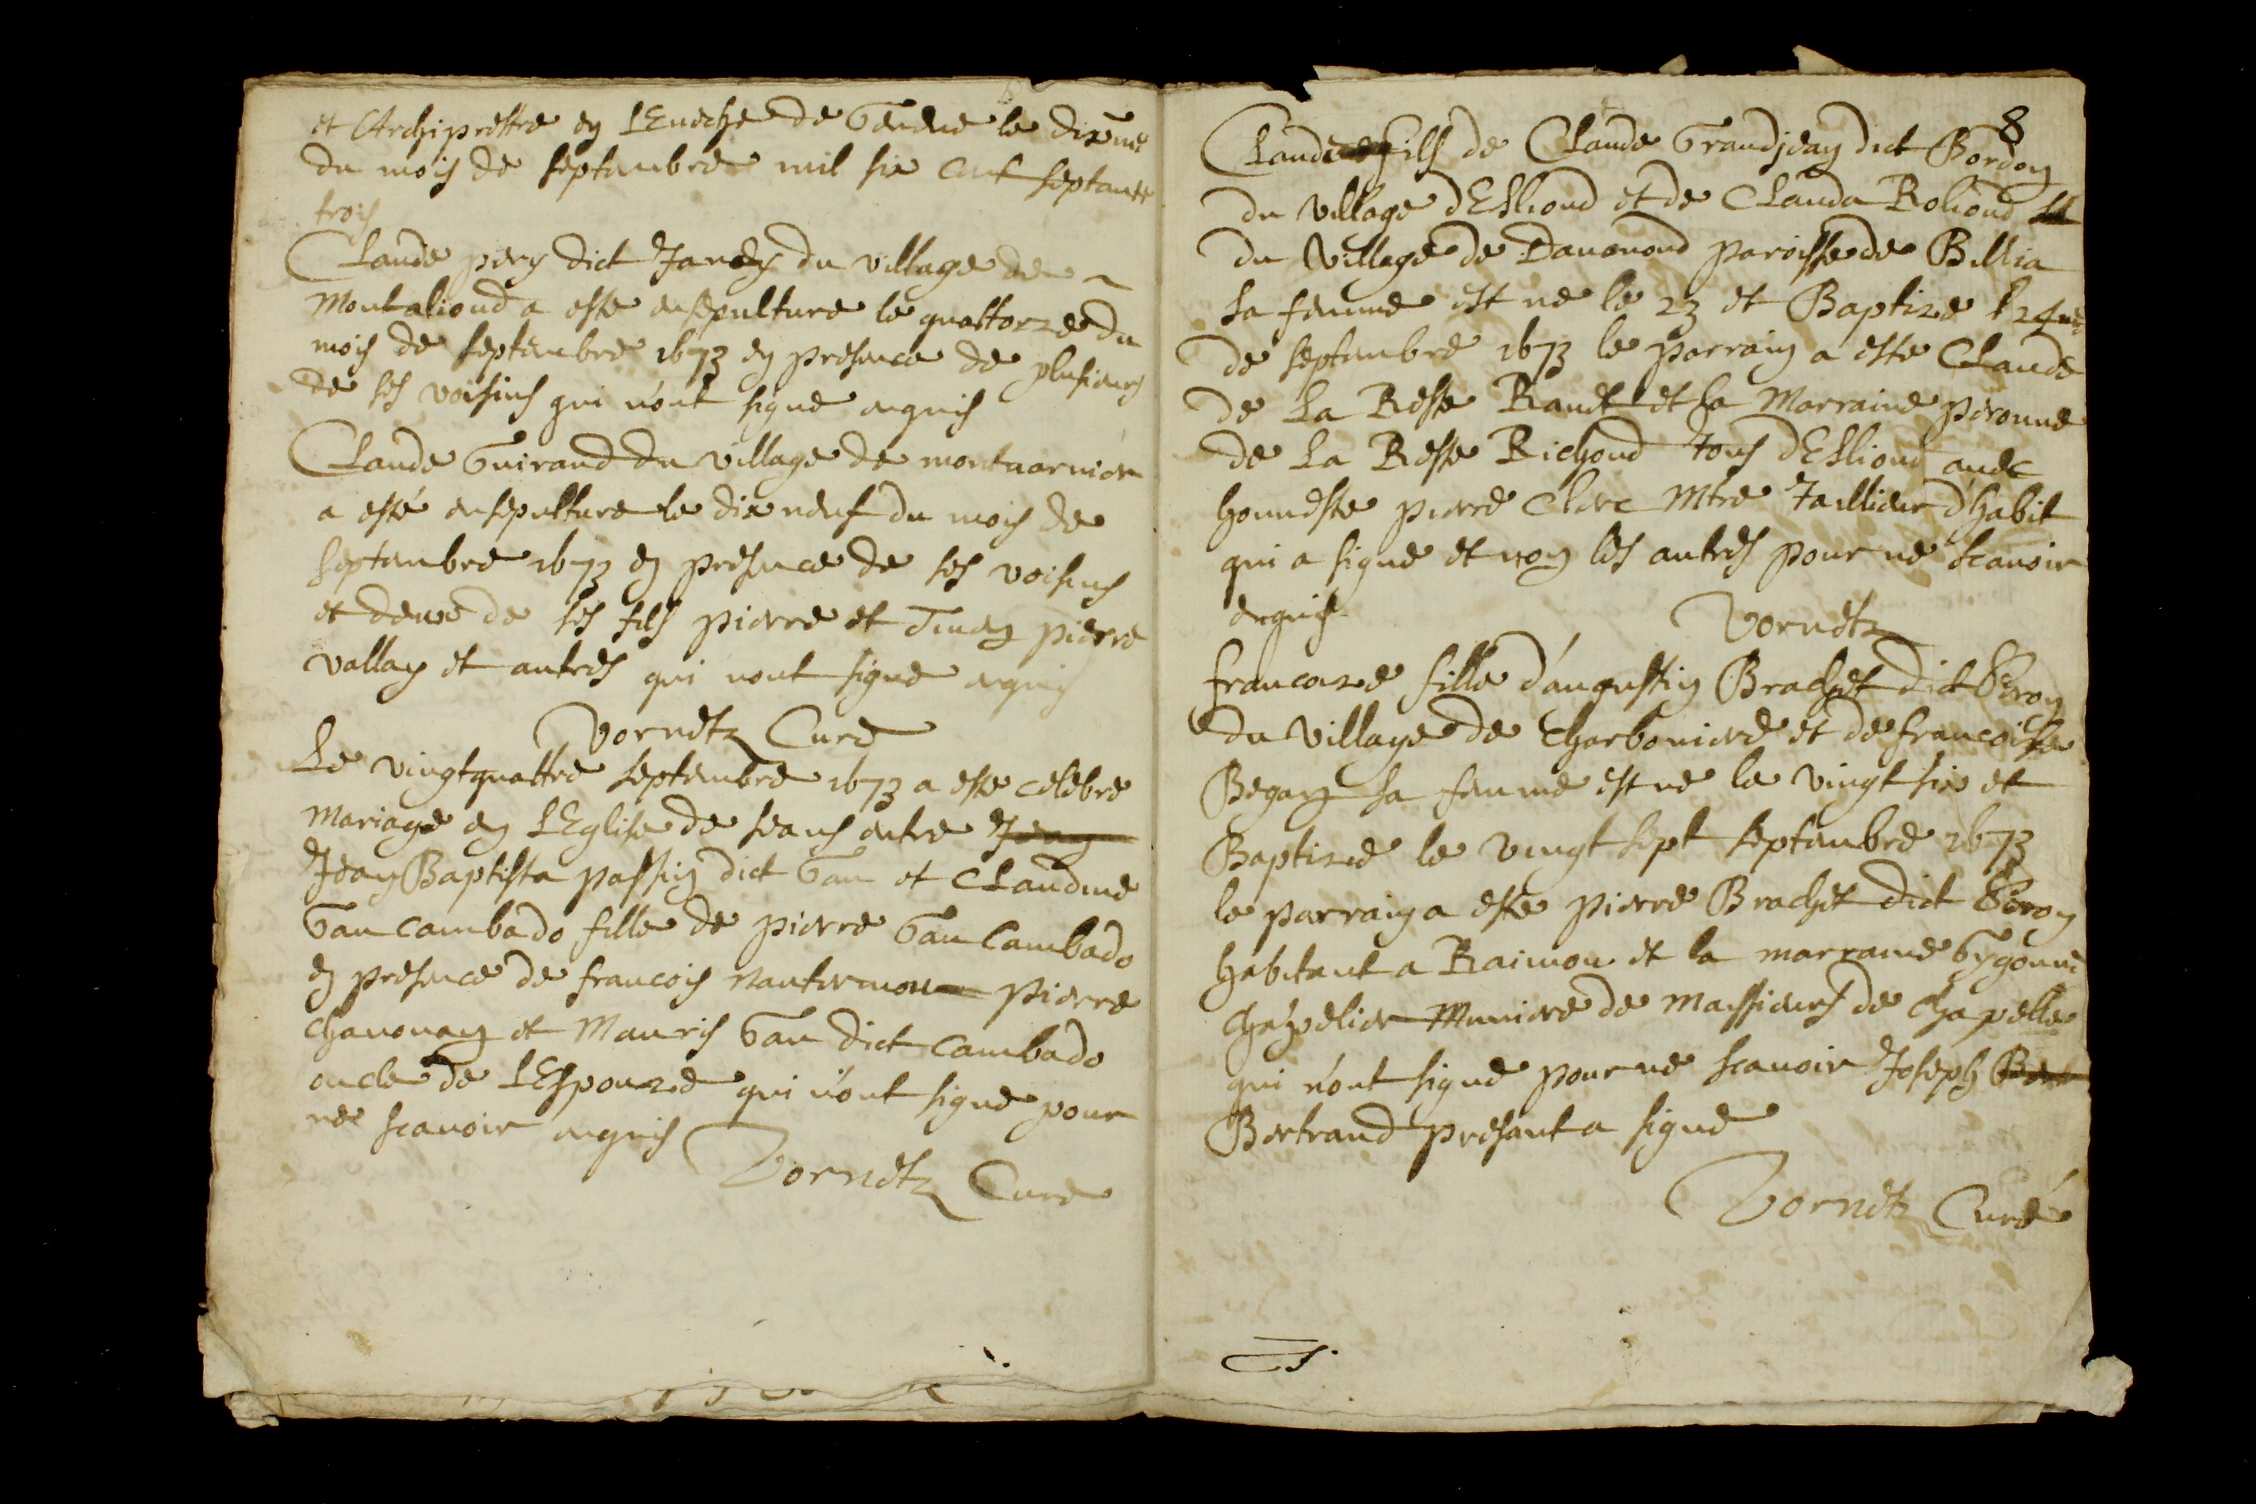 et Archiprestre en L'Eveche de Geneve le dixme
du mois de septambre mil six cent septante
trois
Claude pery dict Jandy du village de
Montaliond a este ensepulture le quattorze du
mois de septembre 1673 en presence de plusieurs
de ses voisins qui n'ont signe enquis
Claude Guiraud du village de montuarnier
a esté ensepulture le dixneuf du mois de
septambre 1673 en presence de ses voisins
et deux de ses fils pierre et pierre
vallay et autres qui nont signe enquis
Vornetz Cure
Le vingtquattre septembre 1673 a este celebre
mariage en L'Eglise de ceans entre Jean
Jean Baptista passin dict Gau et Claudine
Gau cambado fille de pierre Gau Cambado
en presence de francois nantermou pierre
chavonay et Mauris Gau dict cambado
oncle de L'Espouze qui n'ont signe pour
ne scavoir enquis
Vornetz Cure
8
Claude fils de Claude Grandjean dict Bordon
du village d'Esliond et de Clauda Roliond
du village de Davonoud paroisse de Billia
sa femme est ne le 23 et Baptize l 24me
de septambre 1673 le parrain a este Claude
de La Reste Raudt et la Marraine peronne
de La Reste Richoud tous d'Esliond avec
honneste pierre Clerc Mtre Taillieur d'habit
qui a signe et non les autres pour ne scavoir
enquis
Vornetz
francoize fille d'augustin Brachet dict
du village de Charboniere et de francoise
Begay sa femme est ne le vingt six et
Baptizee le vingt sept septembre 1673
le parrain a este pierre Brachet dict
habitant a Raimou et la marraine Gygonne
chapelier Muniere de Massieurs de chapelle
qui n'ont signe pour ne scavoir Joseph
Bertrand present a signe
Vornetz Curé